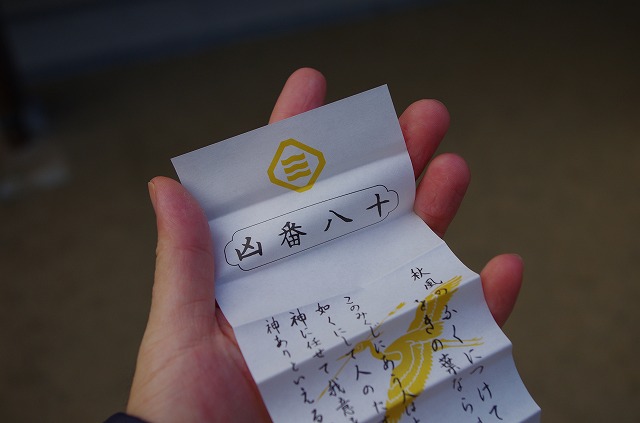 十八番凶
秋風のふくにつけて
をぎの葉なら
このみくじにあう人は
如くにして人の
神に任せて我意
神ありといえる